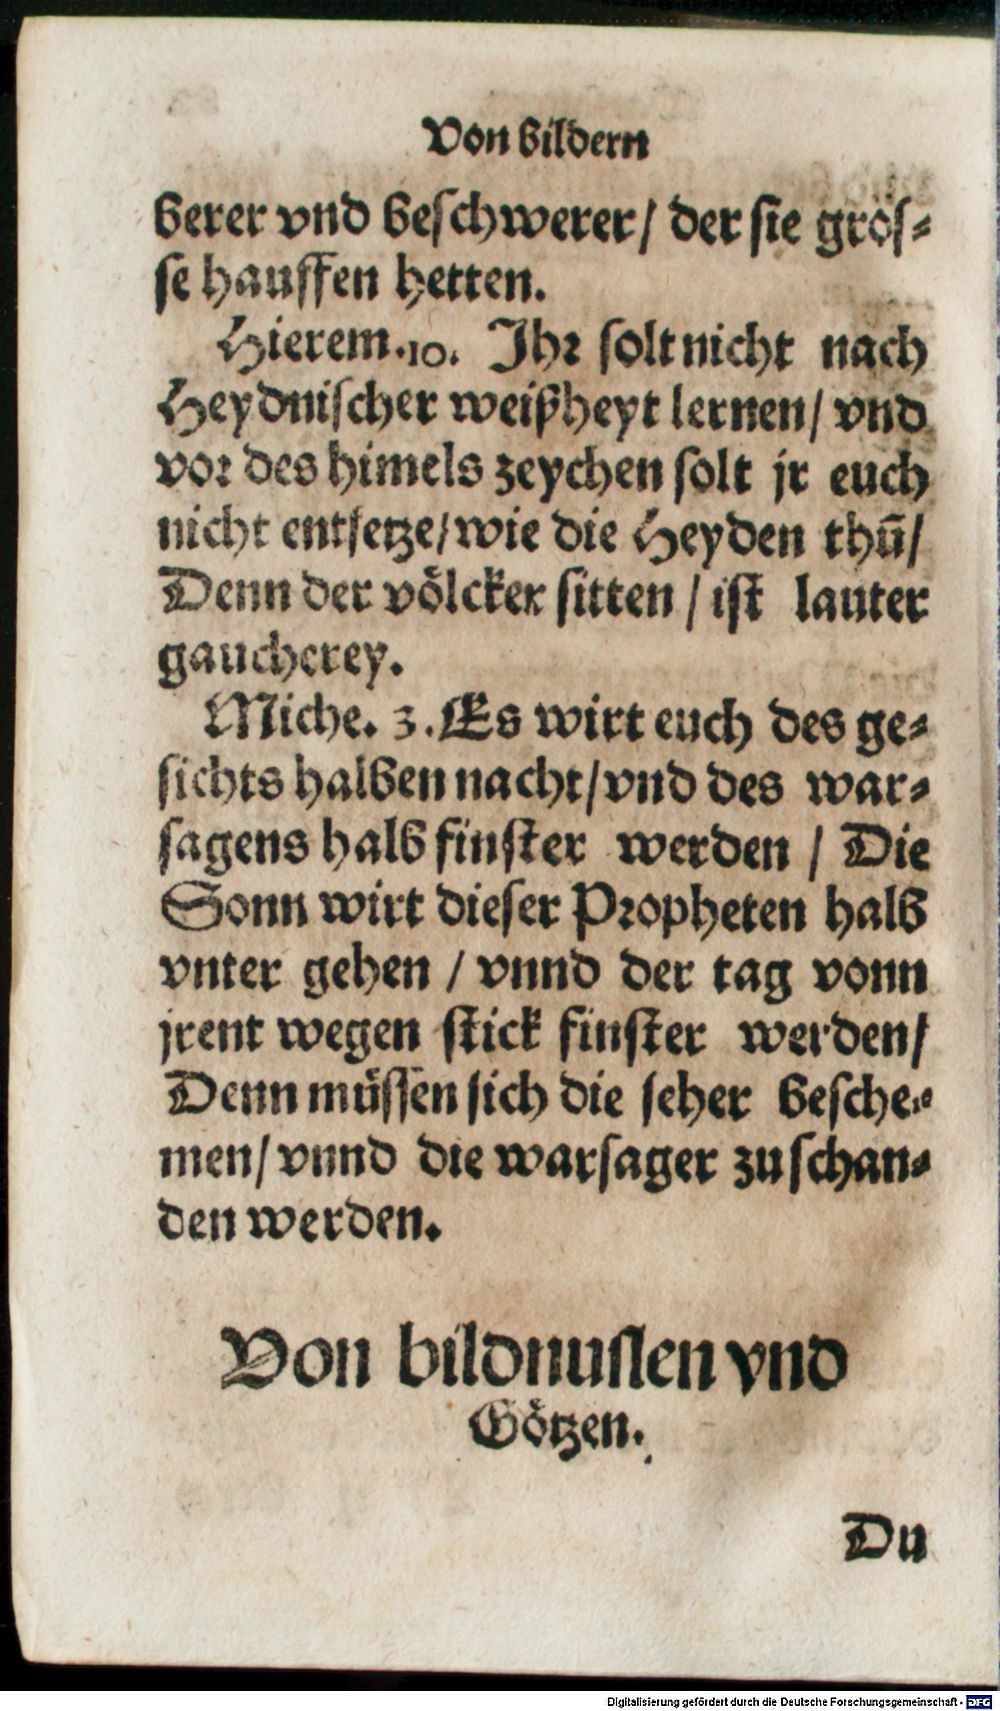 Von bildern
berer vnd beschwerer/ der sie grös-
se hauffen hetten.
Hierem.10. Ihr solt nicht nach
Heydnischer weißheyt lernen/ vnd
vor des himels zeychen solt jr euch
nicht entsetze/ wie die Heyden thuñ/
Denn der völcker sitten / ist lauter
gaucherey.
Miche. 3. Es wirt euch des ge-
sichts halben nacht/ vnd des war-
sagens halb finster werden / Die
Sonn wirt dieser Propheten halb
vnter gehen / vnnd der tag vonn
jrent wegen stick finster werden/
Denn müssen sich die seher besche-
men/ vnnd die warsager zu schan-
den werden.
Von bildnussen vnd
Götzen.
Du
Digitalisierung gefördert durch die Deutsche Forschungsgemeinschaft - DFG